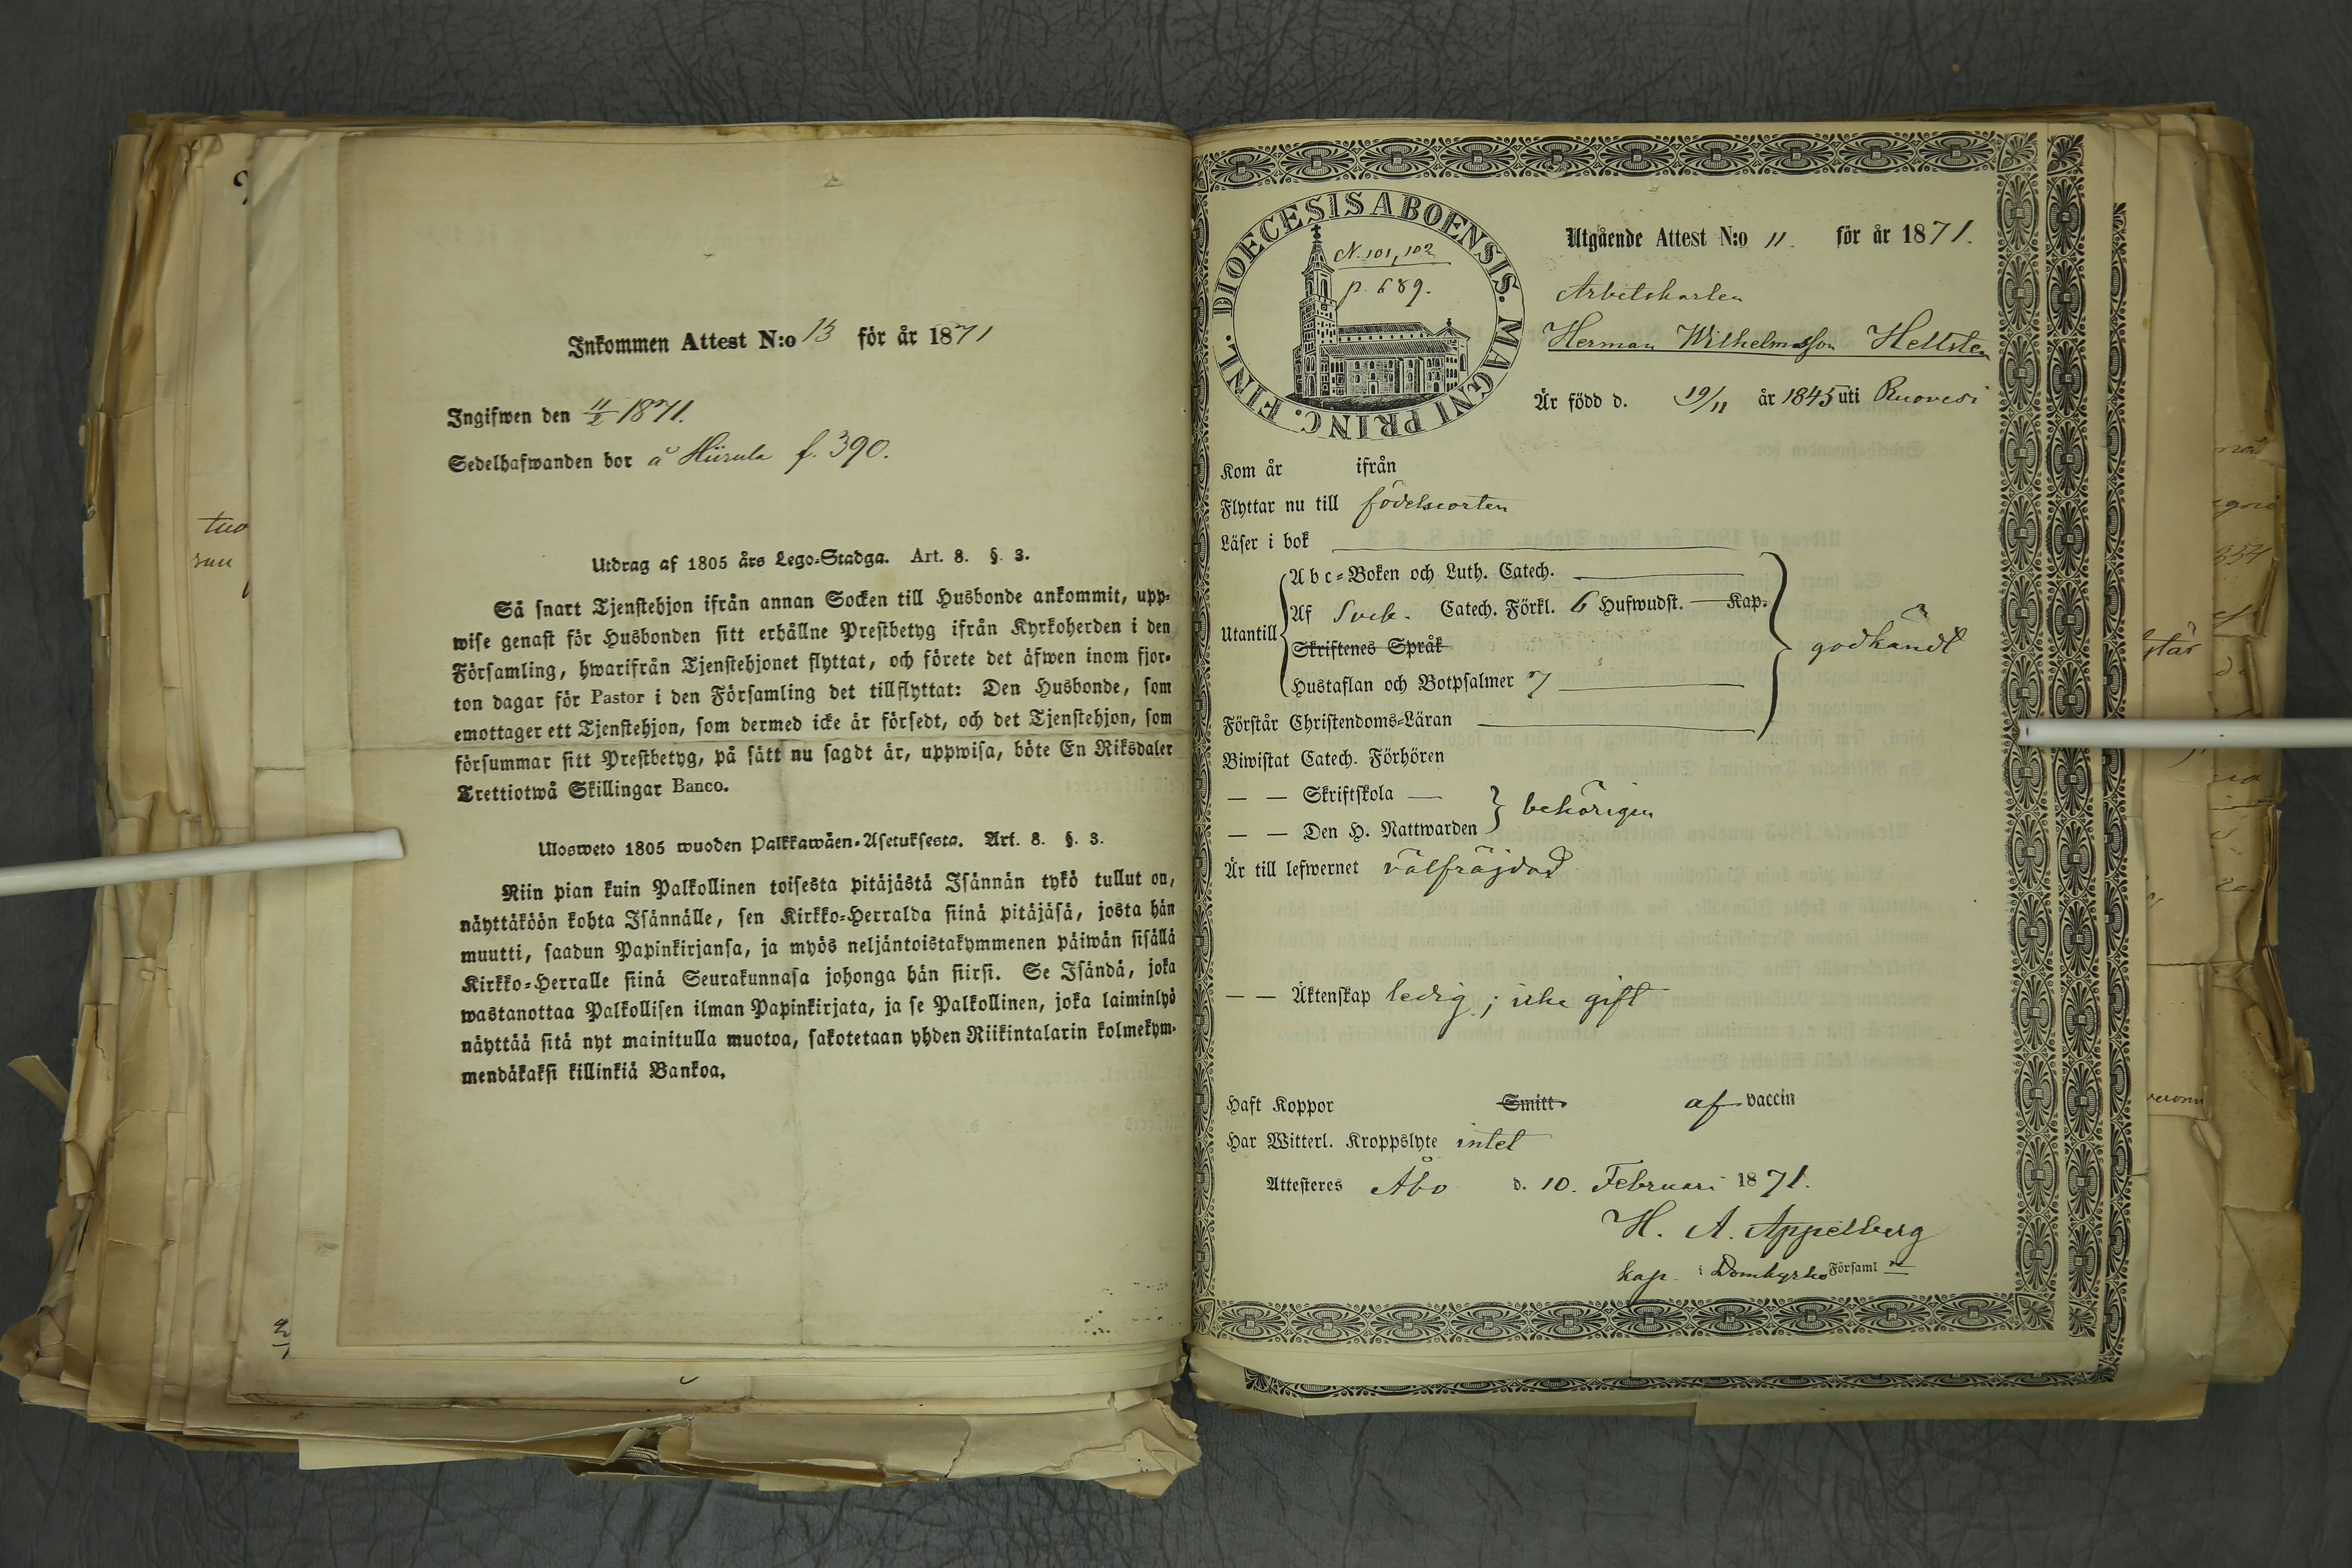 Inkommen Attest N:o 13 för år 1871
Ingifwen den 11/2 1871.
Sedelhafwanden bor å Hiirula f. 390.
Utdrag af 1805 års Lego-Stadga. Art. 8. §. 3.
Så snart Tjenstehjon ifrån annan Socken till Husbonde ankommit, upp-
wise genast för Husbonden sitt erhållne Prestbetyg ifrån Kyrkoherden i den
Församling, hwarifrån Tjenstehjonet flyttat, och förete det äfwen inom fjor-
ton dagar för Pastor i den Församling det tillflyttat: Den Husbonde, som
emottager ett Tjenstehjon, som dermed icke är försedt, och det Tjenstehjon, som
försummar sitt Prestbetyg, på sätt nu sagdt är, uppwisa, böte En Riksdaler
Trettiotwå Skillingar Banco.
Ulosweto 1805 wuoden Palkkawäen-Asetuksesta. Art. 8. §. 3.
Niin pian kuin Palkollinen toisesta pitäjästä Isännän tykö tullut on,
näyttäköön kohta Isännälle, sen Kirkko-Herralda siinä pitäjäsä, josta hän
muutti, saadun Papinkirjansa, ja myös neljäntoistakymmenen päiwän sisällä
Kirkko-Herralle siinä Seurakunnasa johonga hän siirsi. Se Isändä, joka
wastanottaa Palkollisen ilman Papinkirjata, ja se Palkollinen, joka laiminlyö
näyttää sitä nyt mainitulla muotoa, sakotetaan yhden Riikintalarin kolmekym-
mendäkaksi killinkiä Bankoa.
DIOECESIS ABOENSIS. MAGNI PRINC. FINL.
N. 101, 102
p. 689.
Utgående Attest N:o 11. för år 1871.
Arbetskarlen
Herman Wilhelmsson Hellsten
Är född d. 19/11 år 1845 uti Ruovesi
Kom år ifrån
Flyttar nu till födelseorten
Läser i bok
Utantill
Abc-Boken och Luth. Catech.
Af Sveb. Catech. Förkl. 6 Hufwudst. — Kap.
Skriftenes Språk
Hustaflan och Botpsalmer 7
Förstår Christendoms-Läran
godkändt
Biwistat Catech. Förhören
— — Skriftskola —
— — Den H. Nattwarden
behörigen
Är till lefwernet välfräjdad
— — Äktenskap ledig; icke gift
Haft Koppor Smitt. af vaccin
Har Witterl. Kroppslyte intet
Attesteres Åbo d. 10. Februari 1871.
H. A. Appelberg
kap. i Domkyrko Församl